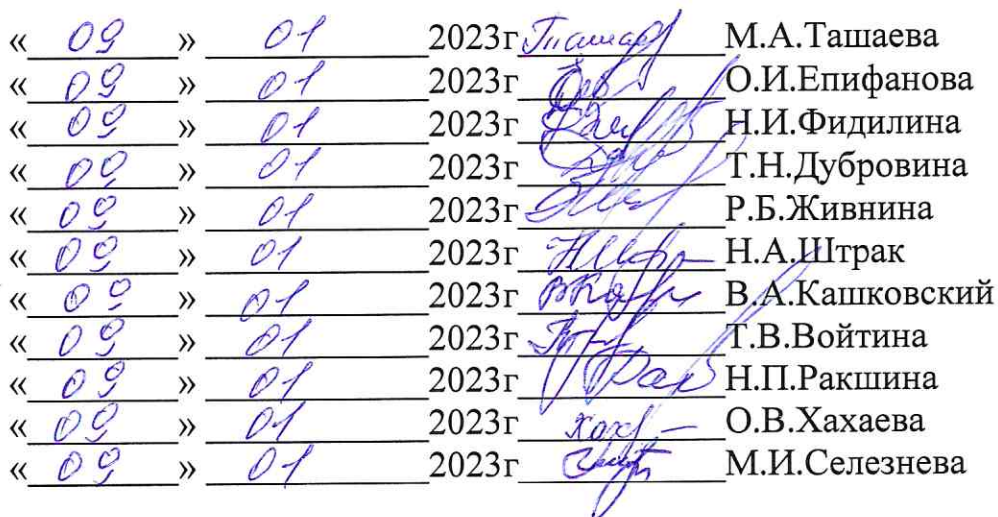 « 09 » 01 2023г Ташаев М.А.Ташаева
« 09 » 01 2023г О.И.Епифанова
« 09 » 01 2023г Н.И.Фидилина
« 09 » 01 2023г Т.Н.Дубровина
« 09 » 01 2023г Р.Б.Живнина
« 09 » 01 2023г Н.А.Штрак
« 09 » 01 2023г В.А.Кашковский
« 09 » 01 2023г Т.В.Войтина
« 09 » 01 2023г Н.П.Ракшина
« 09 » 01 2023г О.В.Хахаева
« 09 » 01 2023г М.И.Селезнева